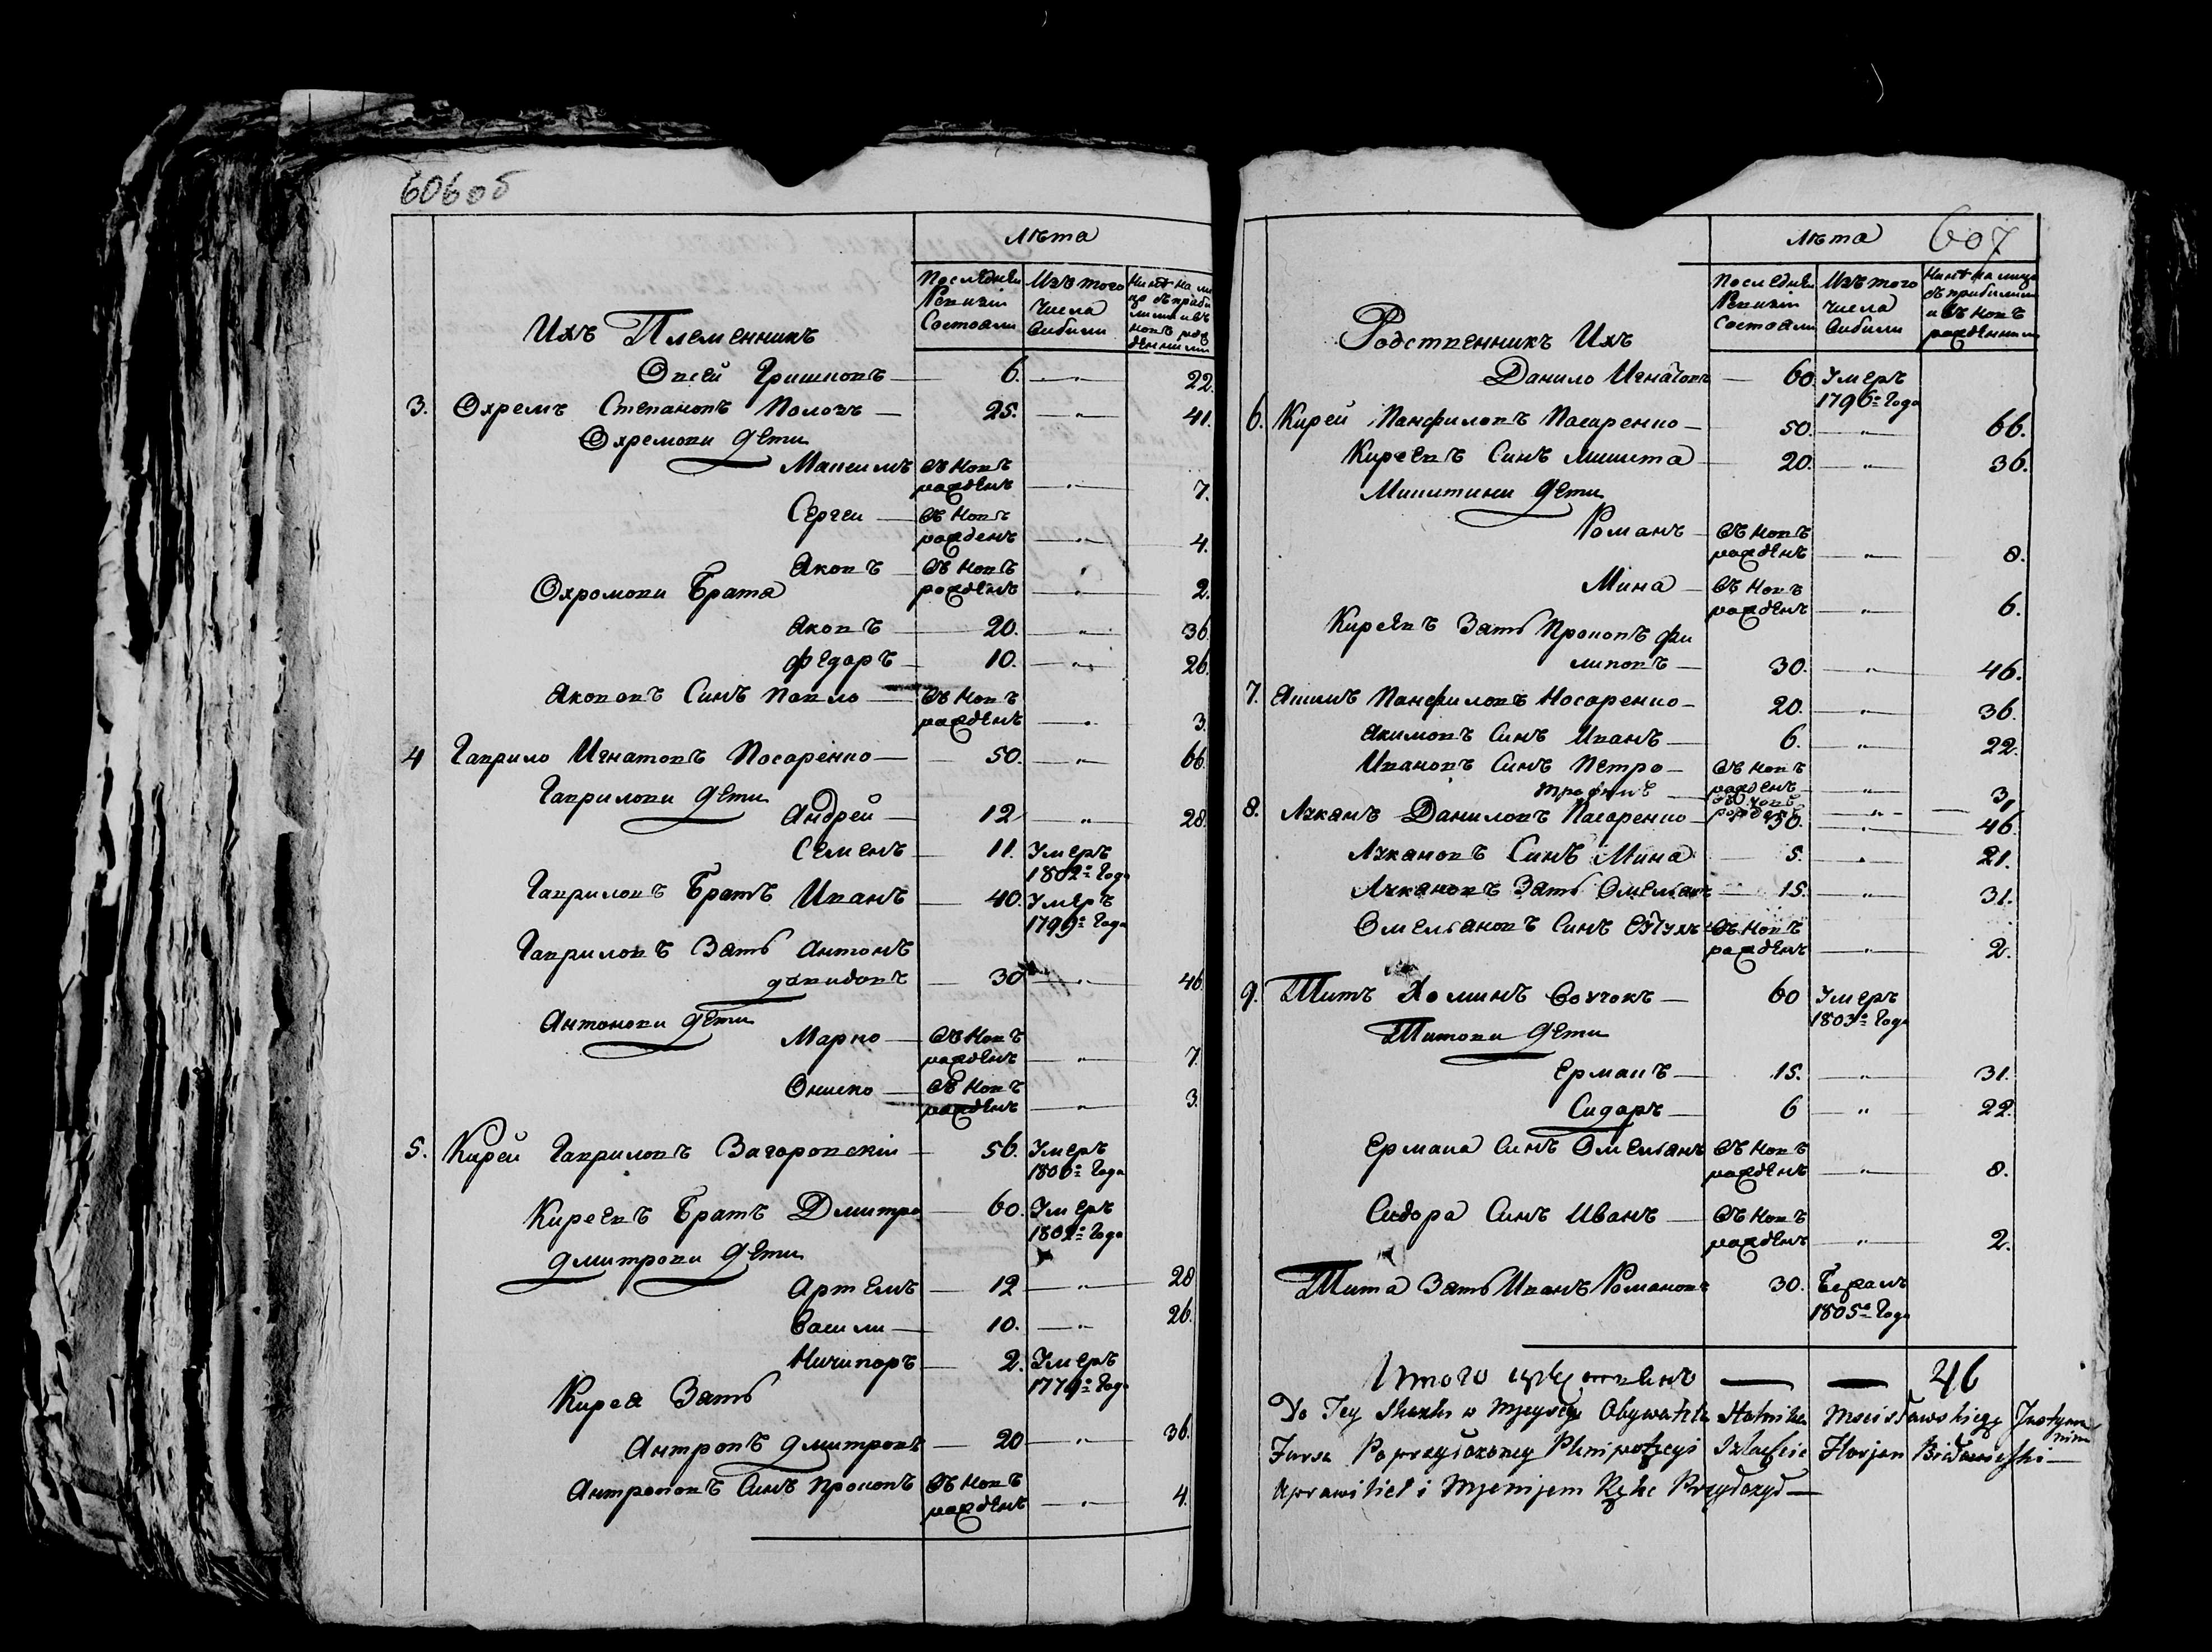 606об
Лѣта
Последней Ревизіи Состояли
Изъ того Числа Вибили
Ихъ Племенникъ
Овсей Гришковъ — 6. — " — 22.
3. Охремъ Степановъ Половъ — 25. — " — 41.
Охремови Дети
Максимъ Въ Новъ рожденъ — " — 7.
Сергеи — Въ Новъ рожденъ — " — 4.
Яковъ — Въ Новъ рожденъ — " — 2.
Охромови Брата
Яковъ — 20. — " — 36.
Федоръ — 10. — " — 26.
Яковов Синъ Павло — Въ Новъ рожденъ — " — 3.
4 Гаврило Игнатовъ Носаренко — 50. — " — 66.
Гаврилови Дети
Андрей — 12 — " — 28.
Семенъ — 11. Умеръ 1802го Года
Гавриловъ Братъ Иванъ — 40. Умеръ 1799го Года
Гавриловъ Зять Антонъ
Давидовъ — 30 — " — 46
Антонови Дети
Марко — Въ Новъ рожденъ — " — 7
Ониско — Въ Новъ рожденъ — " — 3.
5. Кирей Гавриловъ Загоровскій — 56. Умеръ 1800го Года
Киреевъ Братъ Дмитро — 60. Умеръ 1802го Года
Дмитрови Дети
Артемъ — 12 — " — 28
Васили — 10. — " — 26.
Ничипоръ — 2. Умеръ
Кирея Зять
Антропъ Дмитровъ — 20 — " — 36.
Антроповъ Синъ Прокопъ Въ Новъ рожденъ — " — 4.
607
Лѣта
Последней Ревизіи Состояли
Изъ того Числа Вибили
Нинѣ на лицо съ прибилими и въ Новъ рожденними
Родственникъ Ихъ
Данило Игнатовъ — 60 Умеръ 1796го Года
6. Кирей Панфиловъ Носаренко — 50. — " — 66.
Киреевъ Синъ Микита — 20. — " — 36.
Микитини Дети
Романъ — Въ Новъ рожденъ — " — 8.
Мина — Въ Новъ рожденъ — " — 6.
Киреевъ Зять Прокопъ Фи
липовъ — 30. — " — 46.
7. Якимъ Панфиловъ Носаренко — 20. — " — 36.
Якимовъ Синъ Иванъ — 6. — " — 22.
Ивановъ Синъ Петро — Въ Новъ рожденъ — " — 3.
Трофимъ — Въ Новъ рожденъ — " — 1
8. Лукянъ Даниловъ Носаренко — 30. — " — 46.
Лукяновъ Синъ Мина — 5. — " — 21.
Лукяновъ Зять Омельянъ — 15. — " — 31.
Омельяновъ Синъ Въ Новъ рожденъ — " — 2.
9. Титъ Хоминъ Волчокъ — 60 Умеръ 1803го Года
Титови Дети
Ермакъ — 15. — " — 31.
Сидоръ — 6 — " — 22.
Ермака Синъ Омельянъ Въ Новъ рожденъ — " — 8.
Сидора Синъ Иванъ — Въ Новъ рожденъ — " — 2.
Тита Зять Иванъ Романовъ 30. Бежалъ 1805го Года
Итого — — 46
Do Tey Skazki w Mjeyscu Obywatela Stolnika Mscisławskiego
Jursa Florjan
i Mjenijem Rękę Przyłożył —